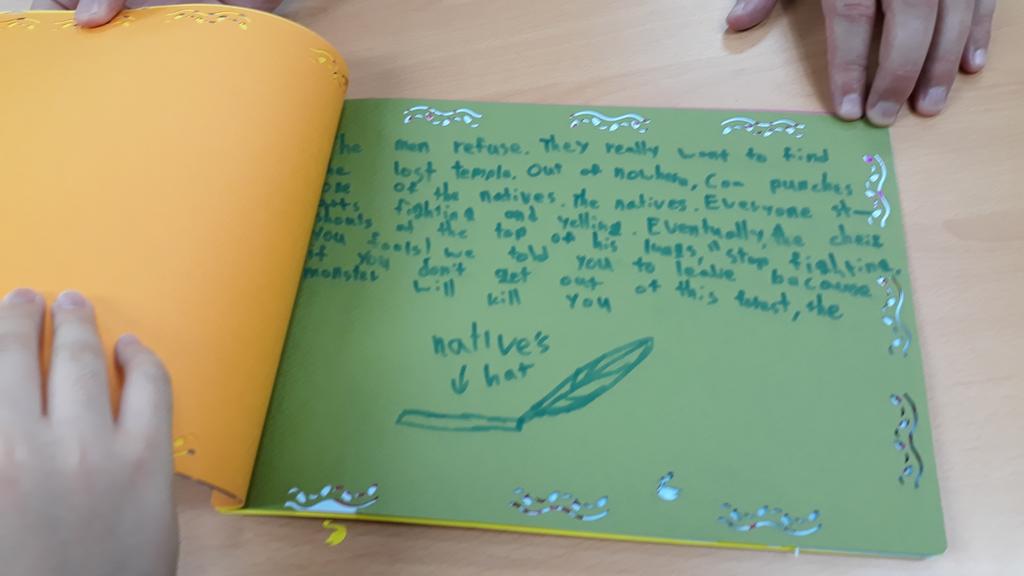 he men refuse. They really want to find
e lost temple. Out of nowhere, Con punches
one of the natives. The natives. Everyone st-
arts fighting and yelling. Eventually, the cheif
shouts at the top of his lungs, "stop fighting,
you fools! we told you to leave because
if you don't get out of this forest, the
monster will kill you
native's
↓ hat